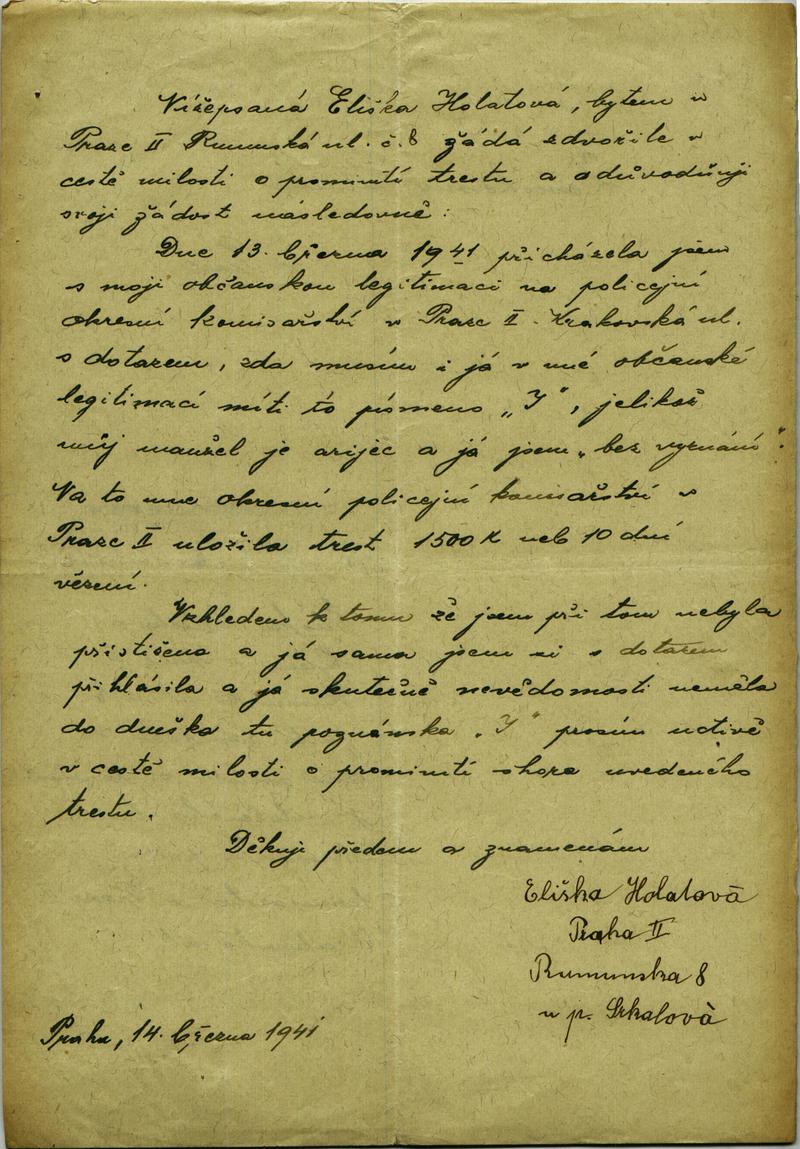 Nížepsaná Eliška Holatová, bytem v
Praze II Rumunská ul. č. 8 žádá zdvořile v
cestě milosti o prominutí trestu a odůvodňuji
svoji žádost následovně:
Dne 13. března 1941 přicházela jsem
s moji občanskou legitimaci na policejní
okresní komisařství v Praze II - Krakovská ul.
s dotazem, zda musím i já v mé občanské
legitimací míti to písmeno „J“, jelikož
můj manžel je arijec a já jsem „bez vyznání“.
Na to mne okresní policejní komisařství v
Praze II uložila trest 1500 K neb 10 dní
vězení.
Vzhledem k tomu že jsem při tom nebyla
přistižena a já sama jsem si s dotazem
přihlásila a já skutečně nevědomosti neměla
do dneška tu poznámku „J“ prosím uctivě
v cestě milosti o prominutí shora uvedeného
trestu.
Děkuji předem a znamenám
Eliška Holatová
Praha II
Rumunska 8
u p.
Praha, 14. března 1941